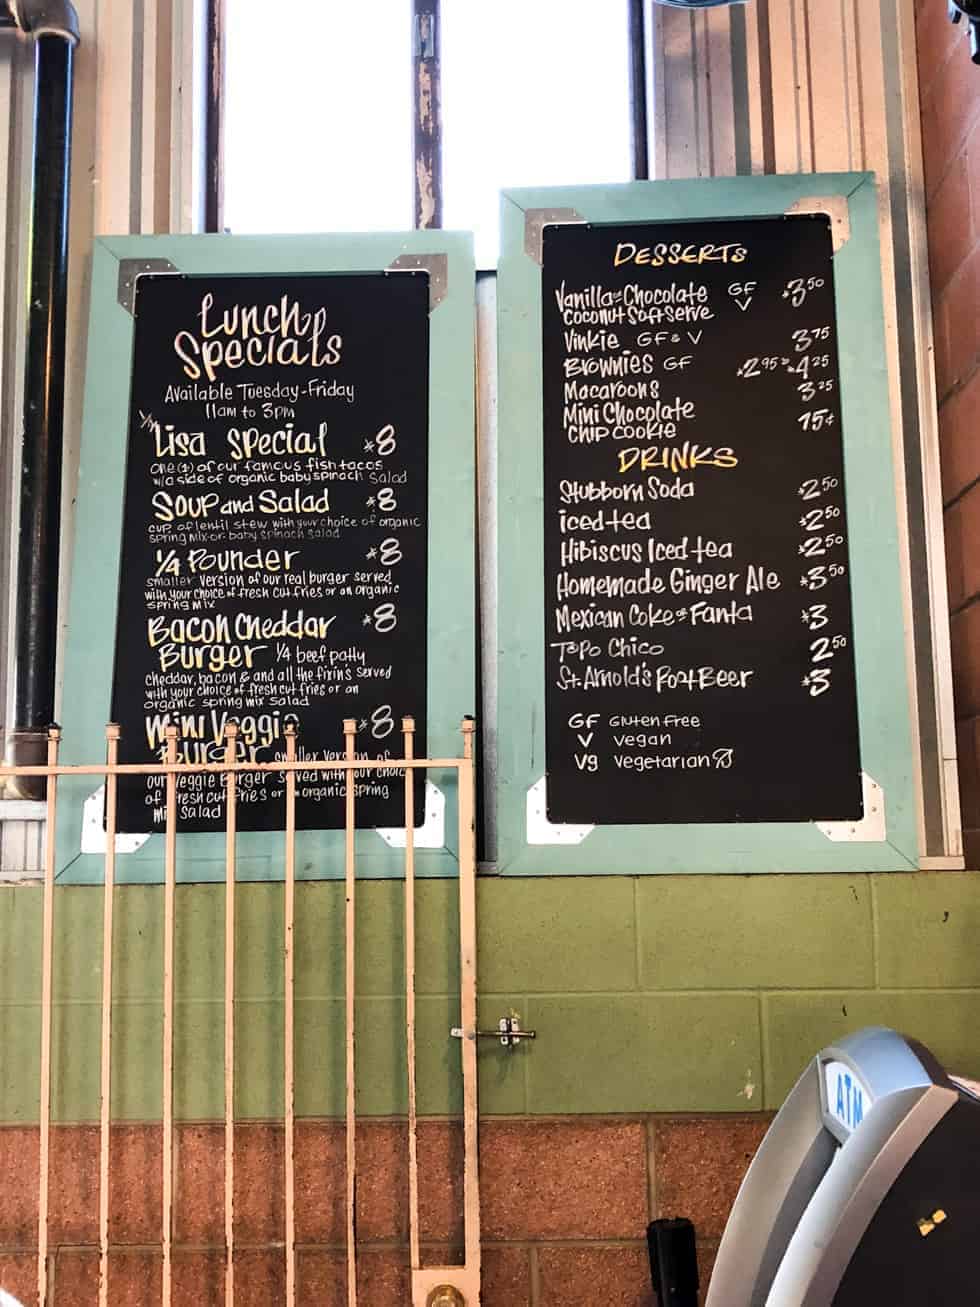 Lunch
Specials
Available Tuesday-Friday
11am to 3pm
Lisa Special $8
one (1) of our famous fish tacos
w/a side of organic baby spinach salad
Soup and Salad $8
cup of lentil stew with your choice of organic
spring mix or baby spinach salad
1/4 Pounder $8
smaller version of our real burger served
with your choice of fresh cut fries or an organic
spring mix
Bacon Cheddar $8
Burger 1/4 beef patty
cheddar, bacon & and all the fixin's served
with your choice of fresh cut fries or an
organic spring mix salad
Mini Veggie $8
Burger smaller version of
our veggie burger served with your choice
of fresh cut fries or an organic spring
mix salad
DESSERTS
Vanilla or Chocolate GF $3.50
Coconut Soft Serve V
Vinkie GF & V 3.75
Brownies GF $2.95 $4.25
Macaroons 3.25
Mini Chocolate 75¢
Chip Cookie
DRINKS
Stubborn Soda $2.50
iced tea $2.50
Hibiscus Iced tea $2.50
Homemade Ginger Ale $3.50
Mexican Coke or Fanta $3
Topo Chico 2.50
St. Arnold's Root Beer $3
GF Gluten Free
V Vegan
Vg Vegetarian
ATM